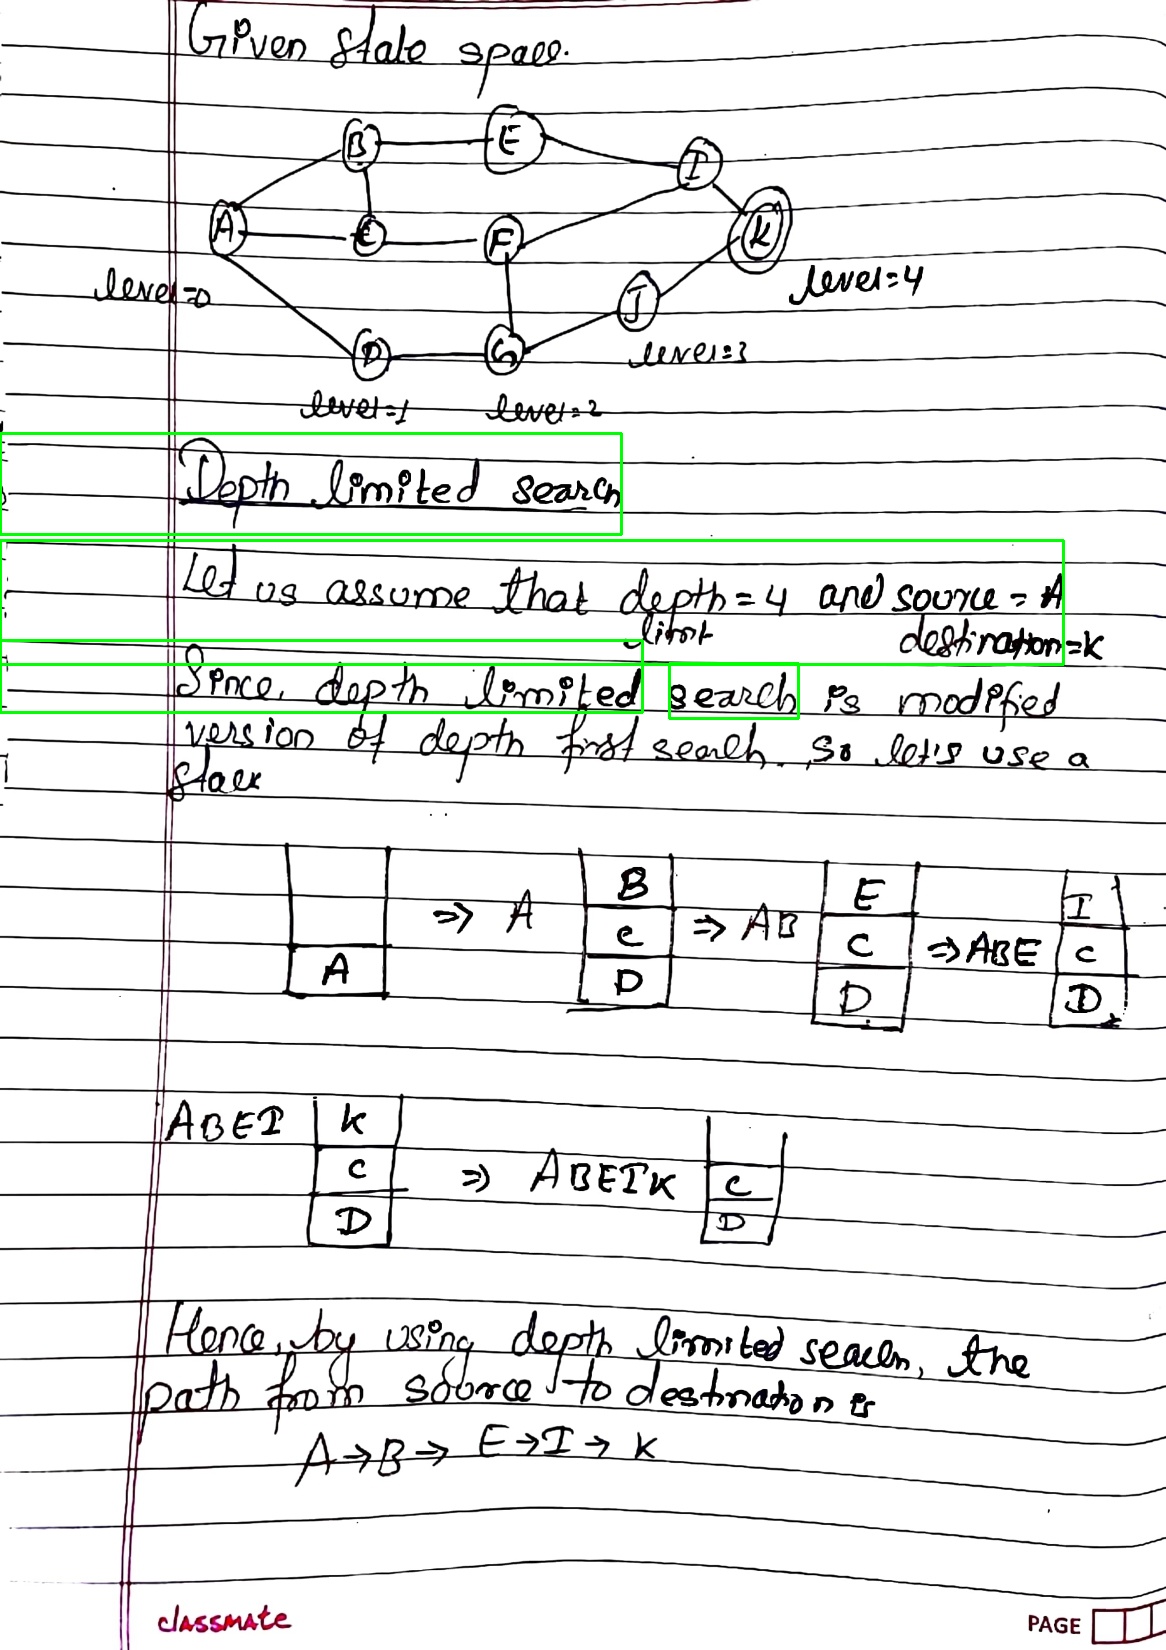 Given state space.
B E I
A C F K
level=0 J level=4
D G level=3
level=1 level=2
Depth limited search
Let us assume that depth = 4 and source = A
limit destination=K
Since, depth limited search is modified
version of depth first search. So let's use a
stack
B E I
A ⇒ A C ⇒ AB C ⇒ ABE C
D D D
ABEI K
C ⇒ ABEIK C
D D
Hence, by using depth limited search, the
path from source to destination is
A → B → E → I → K
classmate
PAGE